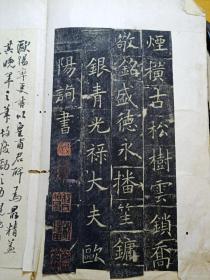 煙橫古松樹雲鎖喬
敬銘盛德永播笙鏞
銀青光祿大夫歐
陽詢書
歐陽率更書以皇甫君碑為最精蓋
其晚年之筆故